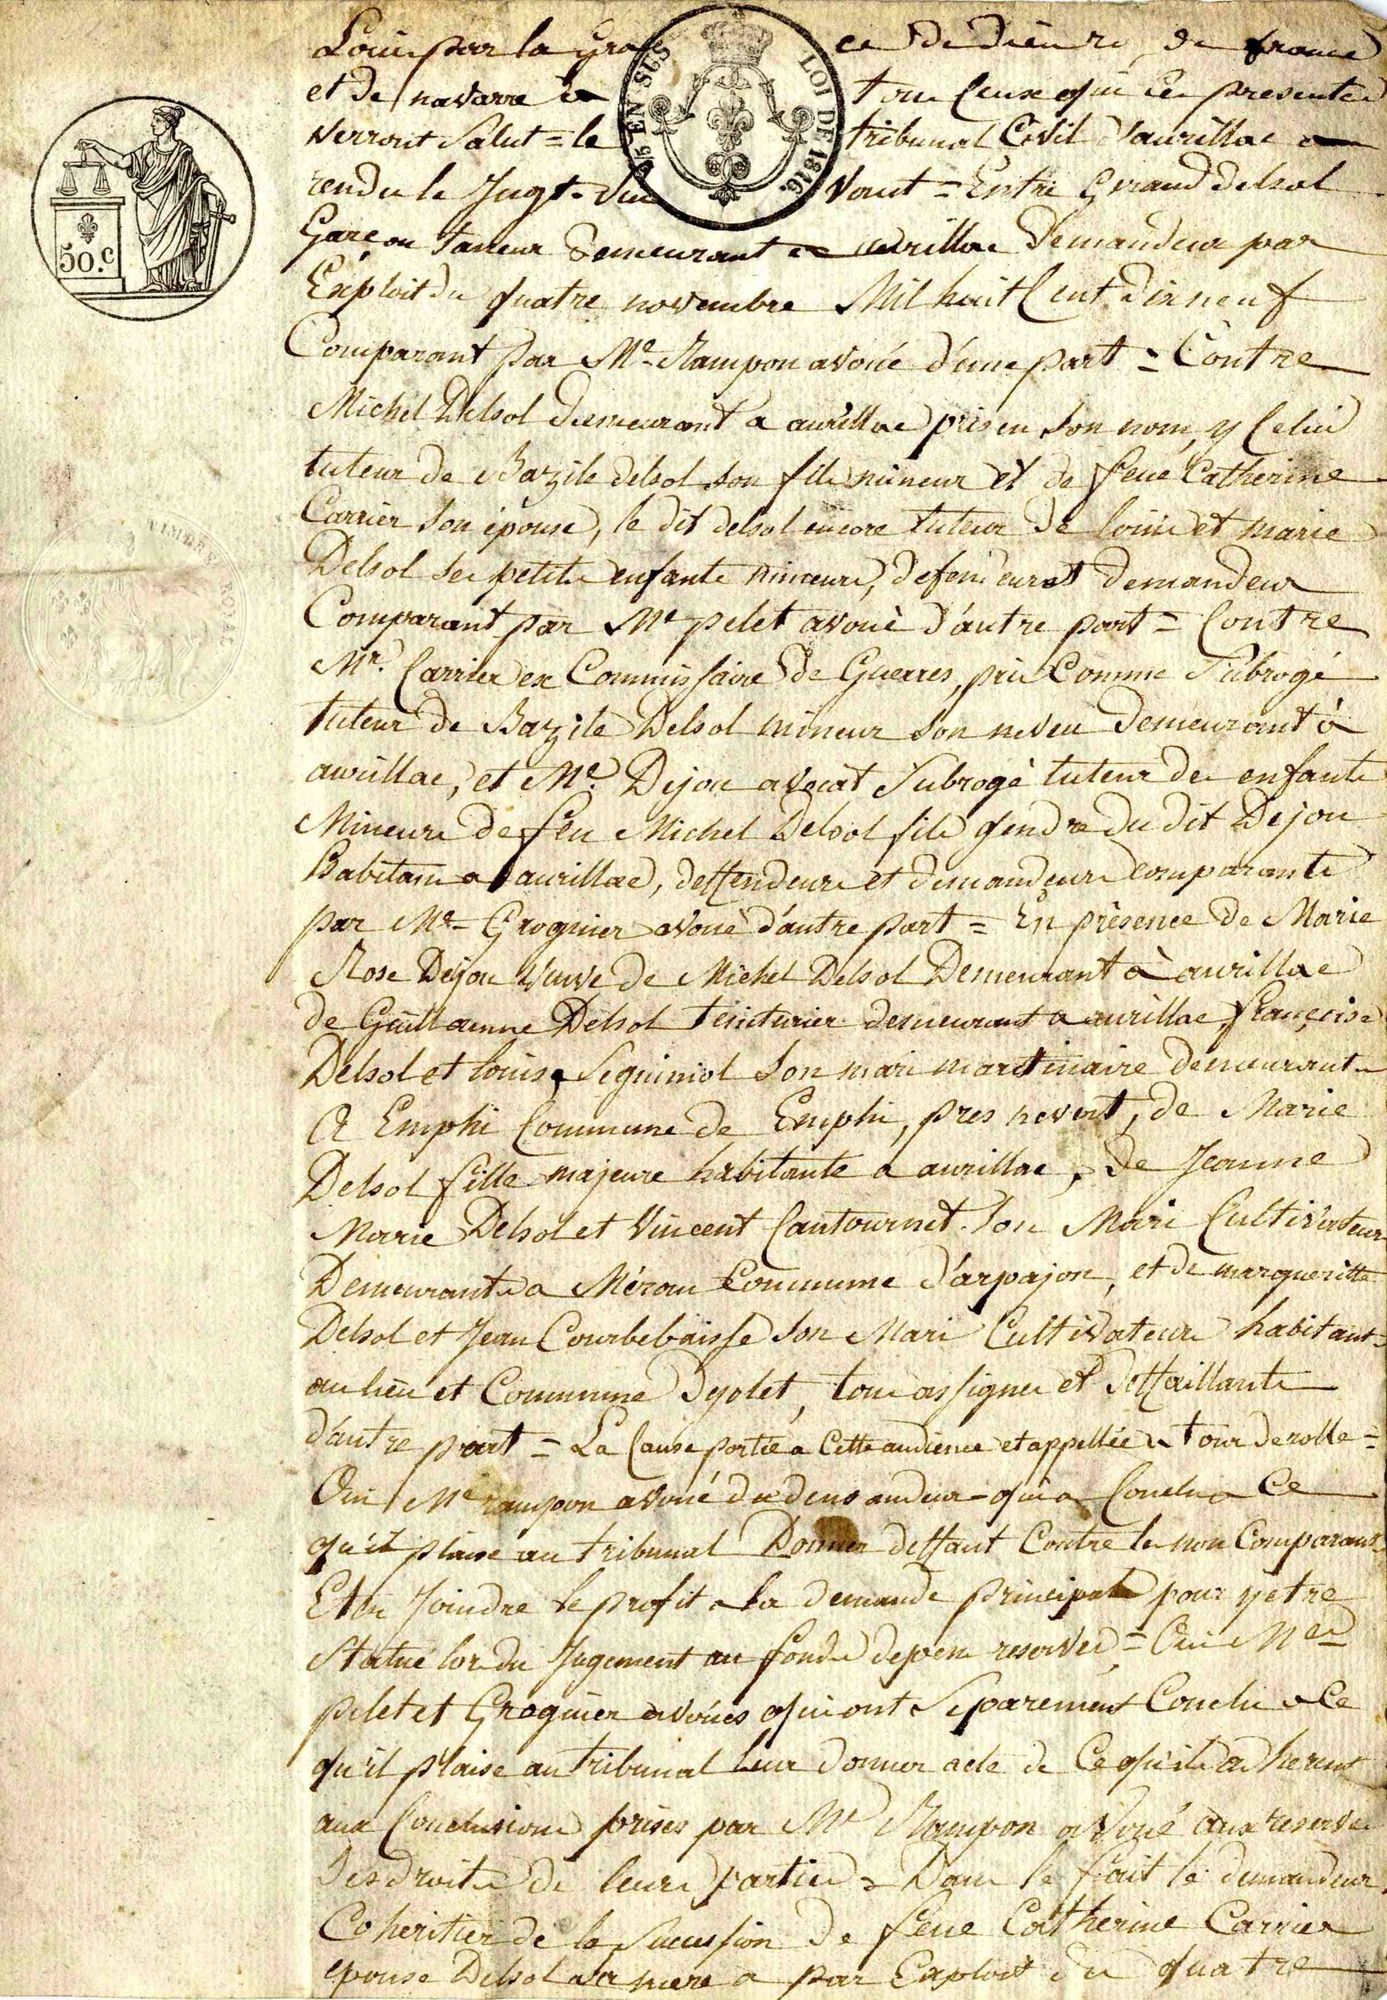 Louis par la grace de dieu roi de france
et de navarre a tous Ceux qui ces presentes
Verront Salut = le tribunal Civil d'aurillac a
rendu le Jugt. Suivant = Entre Giraud delsol
Garçon tanneur Demeurant a aurillac Demandeur par
Exploit du quatre novembre Mil huit Cent dix neuf
Comparant par Me. Rampon avoué d'une part = Contre
Michel Delsol demeurant a aurillac pris en son nom, y Celui
tuteur de Bazile delsol son fils mineur et de feue Catherine
Carrier son épouse, le dit delsol encore tuteur de louis et marie
Delsol ses petits enfants mineurs, defendeur et demandeur
Comparant par Me pelet avoué d'autre part = Contre
Mr. Carrier ex Commissaire de Guerres, pris Comme Subrogé
tuteur de Bazile Delsol mineur son neveu demeurant à
aurillac, et Me. Dejou avocat Subrogé tuteur des enfants
Mineurs de feu Michel Delsol fils gendre du dit Dejou
habitans a aurillac, deffendeurs et demandeurs comparants
par Me Grognier avoué d'autre part = En présence de Marie
Rose Dejou Veuve de Michel Delsol Demeurant à aurillac
de Guillaume Delsol teinturier demeurant a aurillac, françoise
Delsol et louis Seguiniol son mari martinaire demeurants
A Emphi Commune de Emphi, pres nevers, de Marie
Delsol fille majeure habitante a aurillac, de Jeanne
Marie Delsol et Vincent Cantournet son Mari Cultivateur
Demeurants a Mérou Commune d'arpajon, et de margueritte
Delsol et Jean Courbebaisse son Mari Cultivateur habitant
au lieu et Commune Dyolet, tous assignés et deffaillants
d'autre part = La Cause portée a Cette audience et appellée a tour de rolle =
Oui Me rampon avoué du demandeur qui a Conclu a Ce
qu'il plaise au tribunal Donner deffaut Contre les non Comparans
Et en Joindre le profit a la demande principale pour y etre
Statué lors du Jugement au fonds depens reservés = Oui Mes
pelet et Grognier avoués qui ont Separement Conclu a Ce
qu'il plaise au tribunal leur donner acte de Ce qu'ils adherent
aux Conclusions prises par Me Rampon avoué aux reserves
des droits de leurs parties = Dans le fait le demandeur
Coheritier de la Succession de feue Catherine Carrier
epouse Delsol sa mere a par Exploit du quatre
50.c
EN SUS LOI DE 1816.
TIMBRE ROYAL